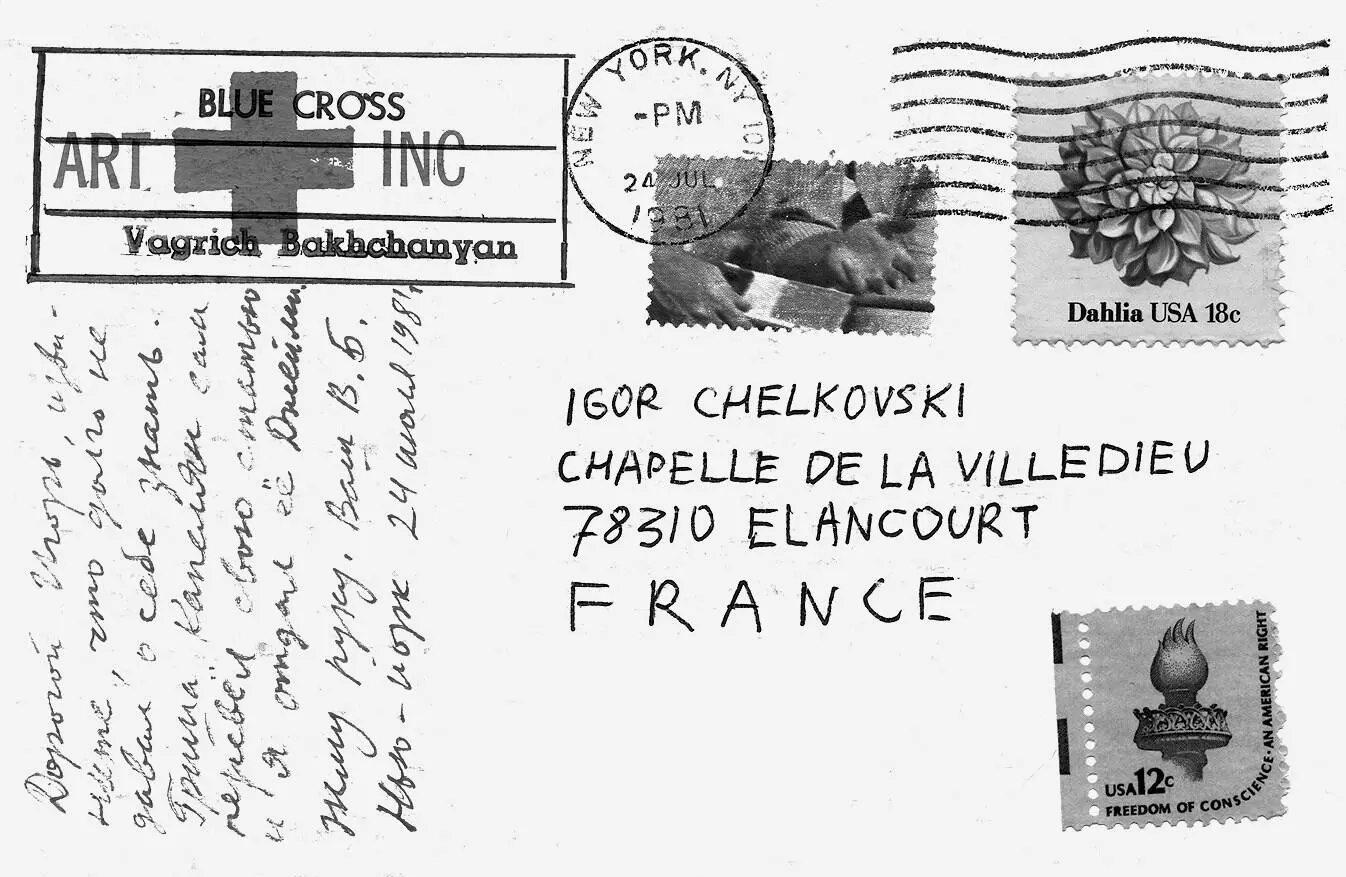 BLUE CROSS
ART INC
Vagrich Bakhchanyan
NEW YORK, NY
-PM
24 JUL
1981
Dahlia USA 18c
IGOR CHELKOVSKI
CHAPELLE DE LA VILLEDIEU
78310 ELANCOURT
FRANCE
USA 12c
FREEDOM OF CONSCIENCE • AN AMERICAN RIGHT
Дорогой Игорь, изви-
ните, что долго не
давал о себе знать.
Гриша Капелян сам
перевёл свою статью
и я отдал её Джейми.
Жму руку. Ваш В.Б.
Нью-Йорк 24 июля 1981,